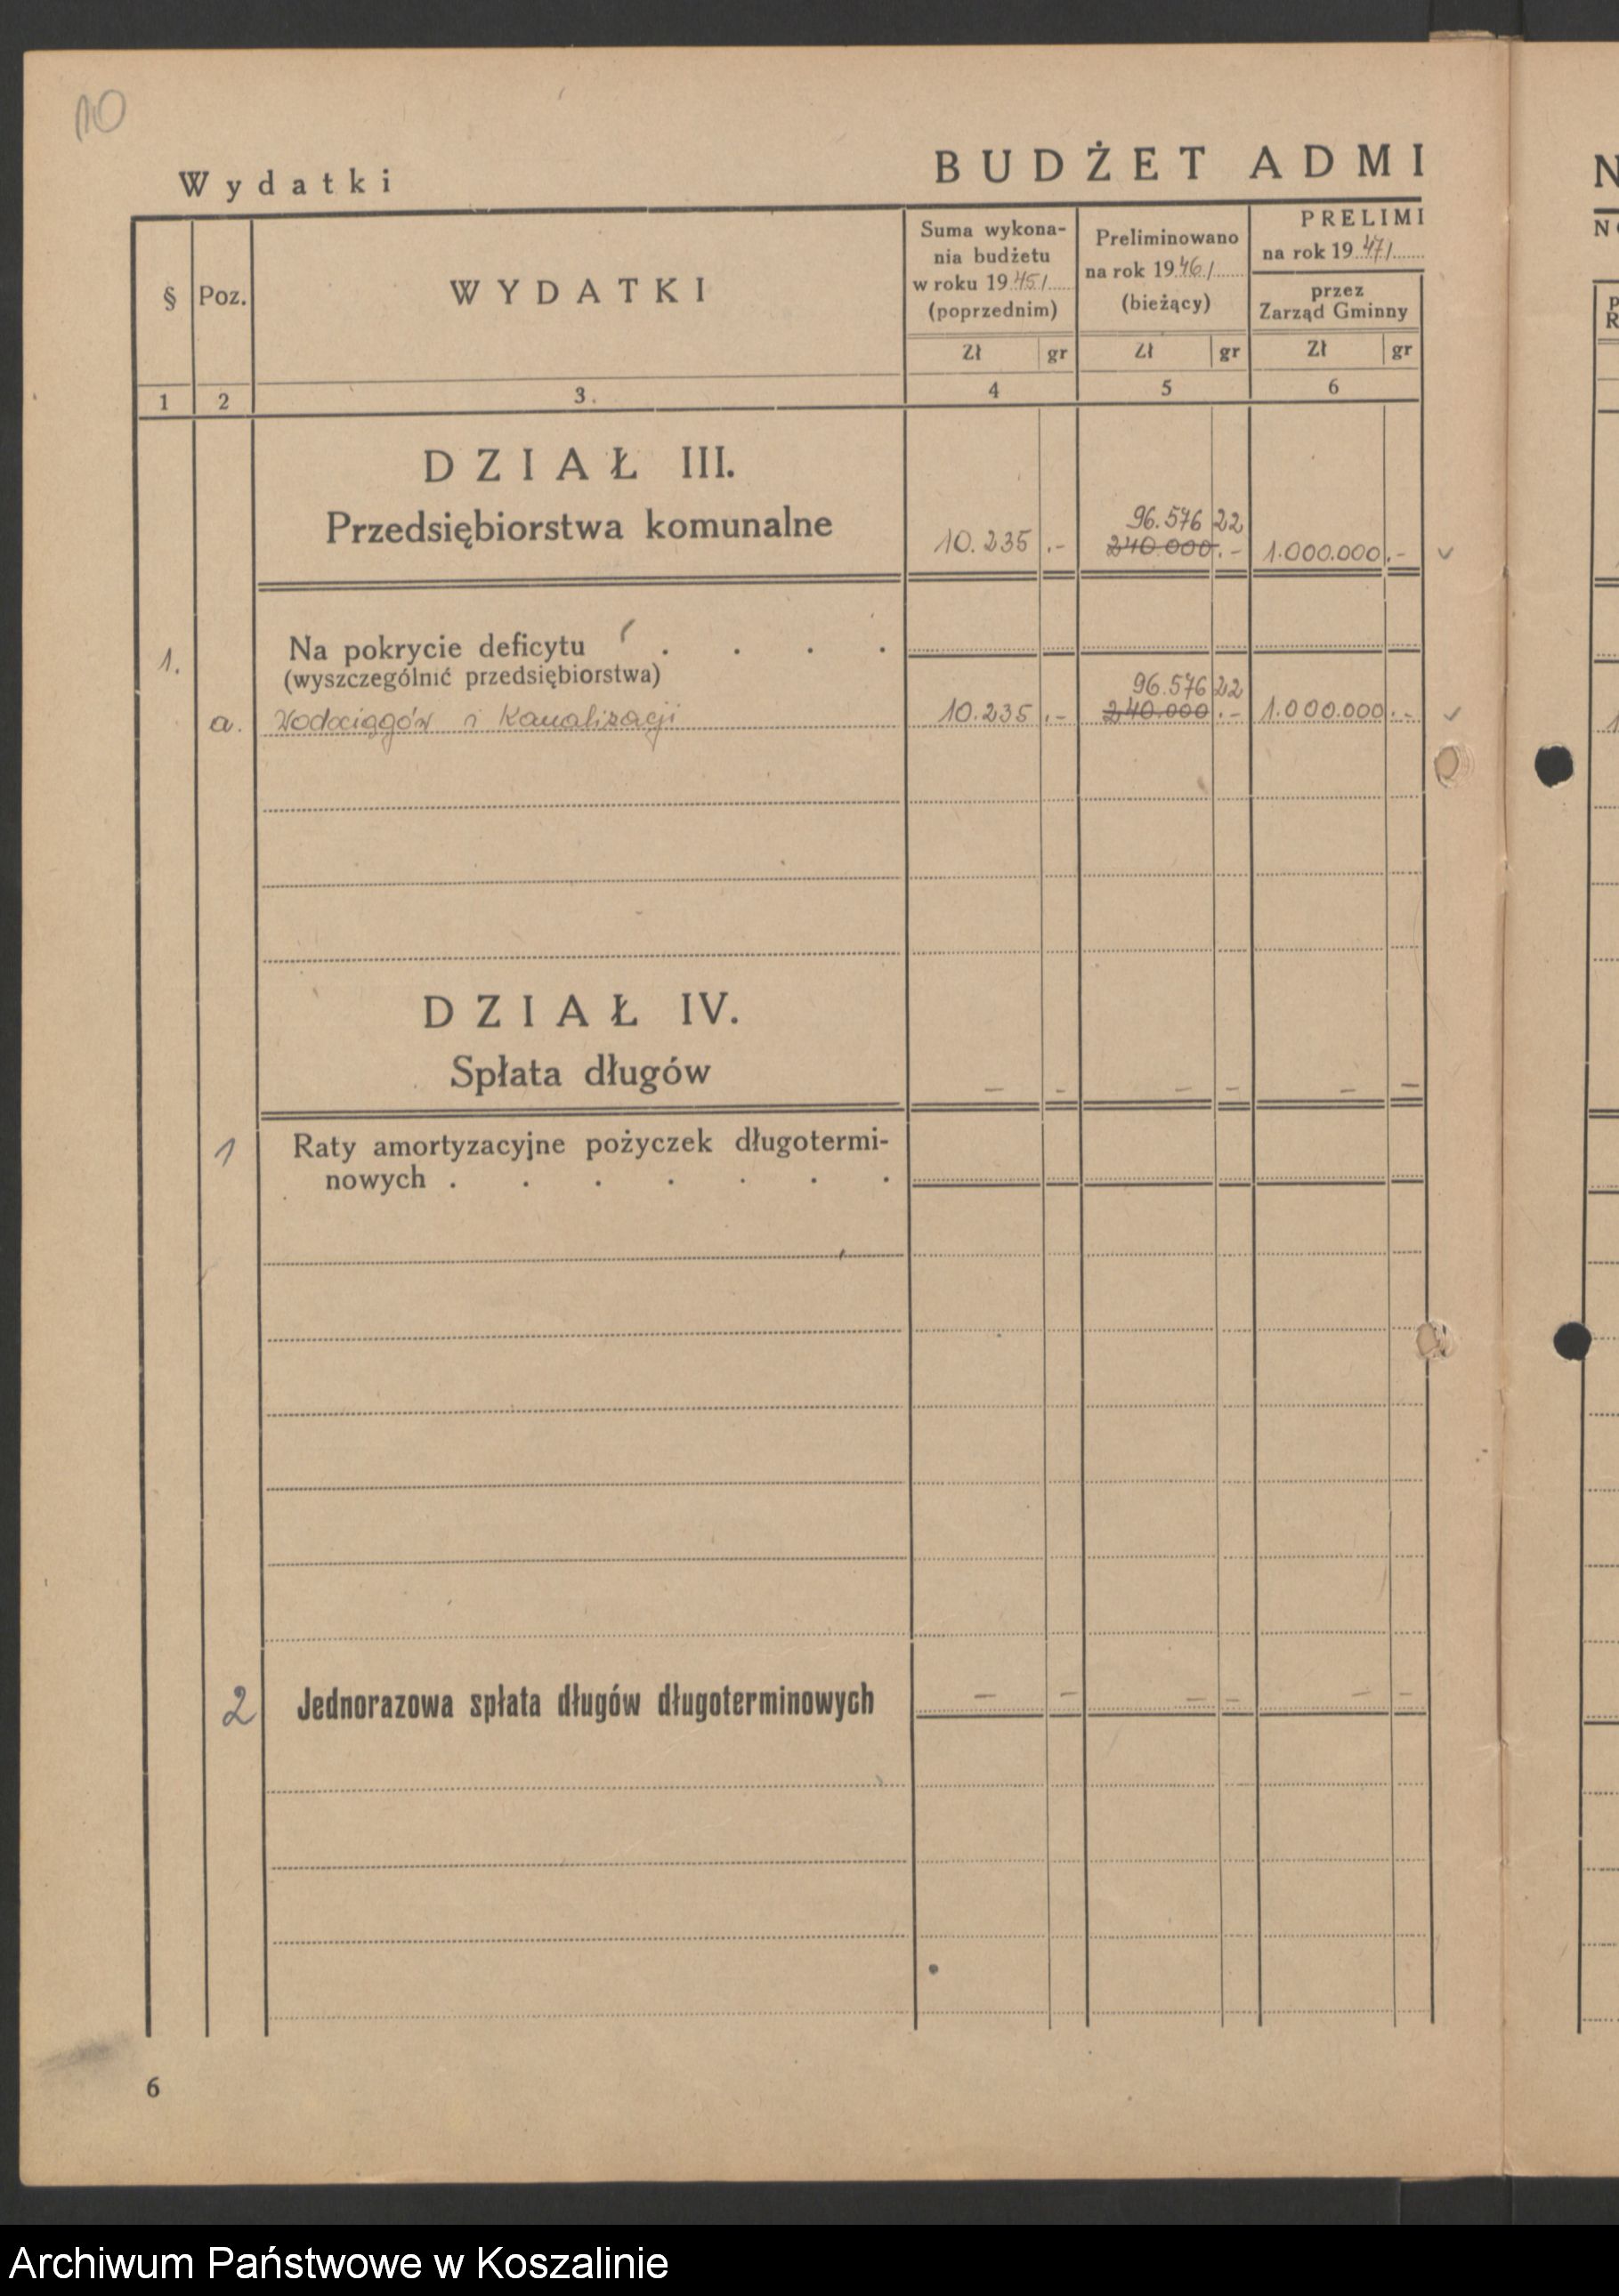 10
Wydatki
BUDŻET ADMI
§
Poz.
WYDATKI
Suma wykona-
nia budżetu
w roku 1945/
(poprzednim)
Preliminowano
na rok 1946/
(bieżący)
PRELIMI
na rok 1947/
przez
Zarząd Gminny
Zł gr Zł gr Zł gr
1 2 3. 4 5 6
DZIAŁ III.
Przedsiębiorstwa komunalne
96.576 22
10.235 .- 240.000 .- 1.000.000 .- ✓
1. Na pokrycie deficytu . . . .
(wyszczególnić przedsiębiorstwa)
96.576 22
a. Wodociągów i Kanalizacji 10.235 .- 240.000 .- 1.000.000 .- ✓
DZIAŁ IV.
Spłata długów
– – – – – –
1 Raty amortyzacyjne pożyczek długotermi-
nowych . . . . . . .
2 Jednorazowa spłata długów długoterminowych – – – – – –
6
Archiwum Państwowe w Koszalinie